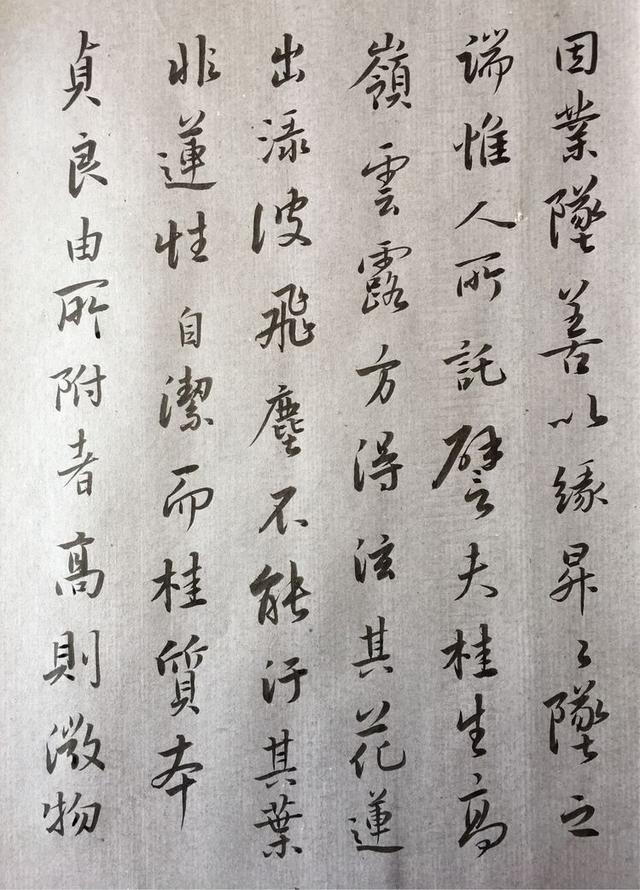 因業墜善以緣昇〻墜之
端惟人所託譬夫桂生高
嶺雲露方得泫其花蓮
出渌波飛塵不能汙其葉
非蓮性自潔而桂質本
貞良由所附者高則微物